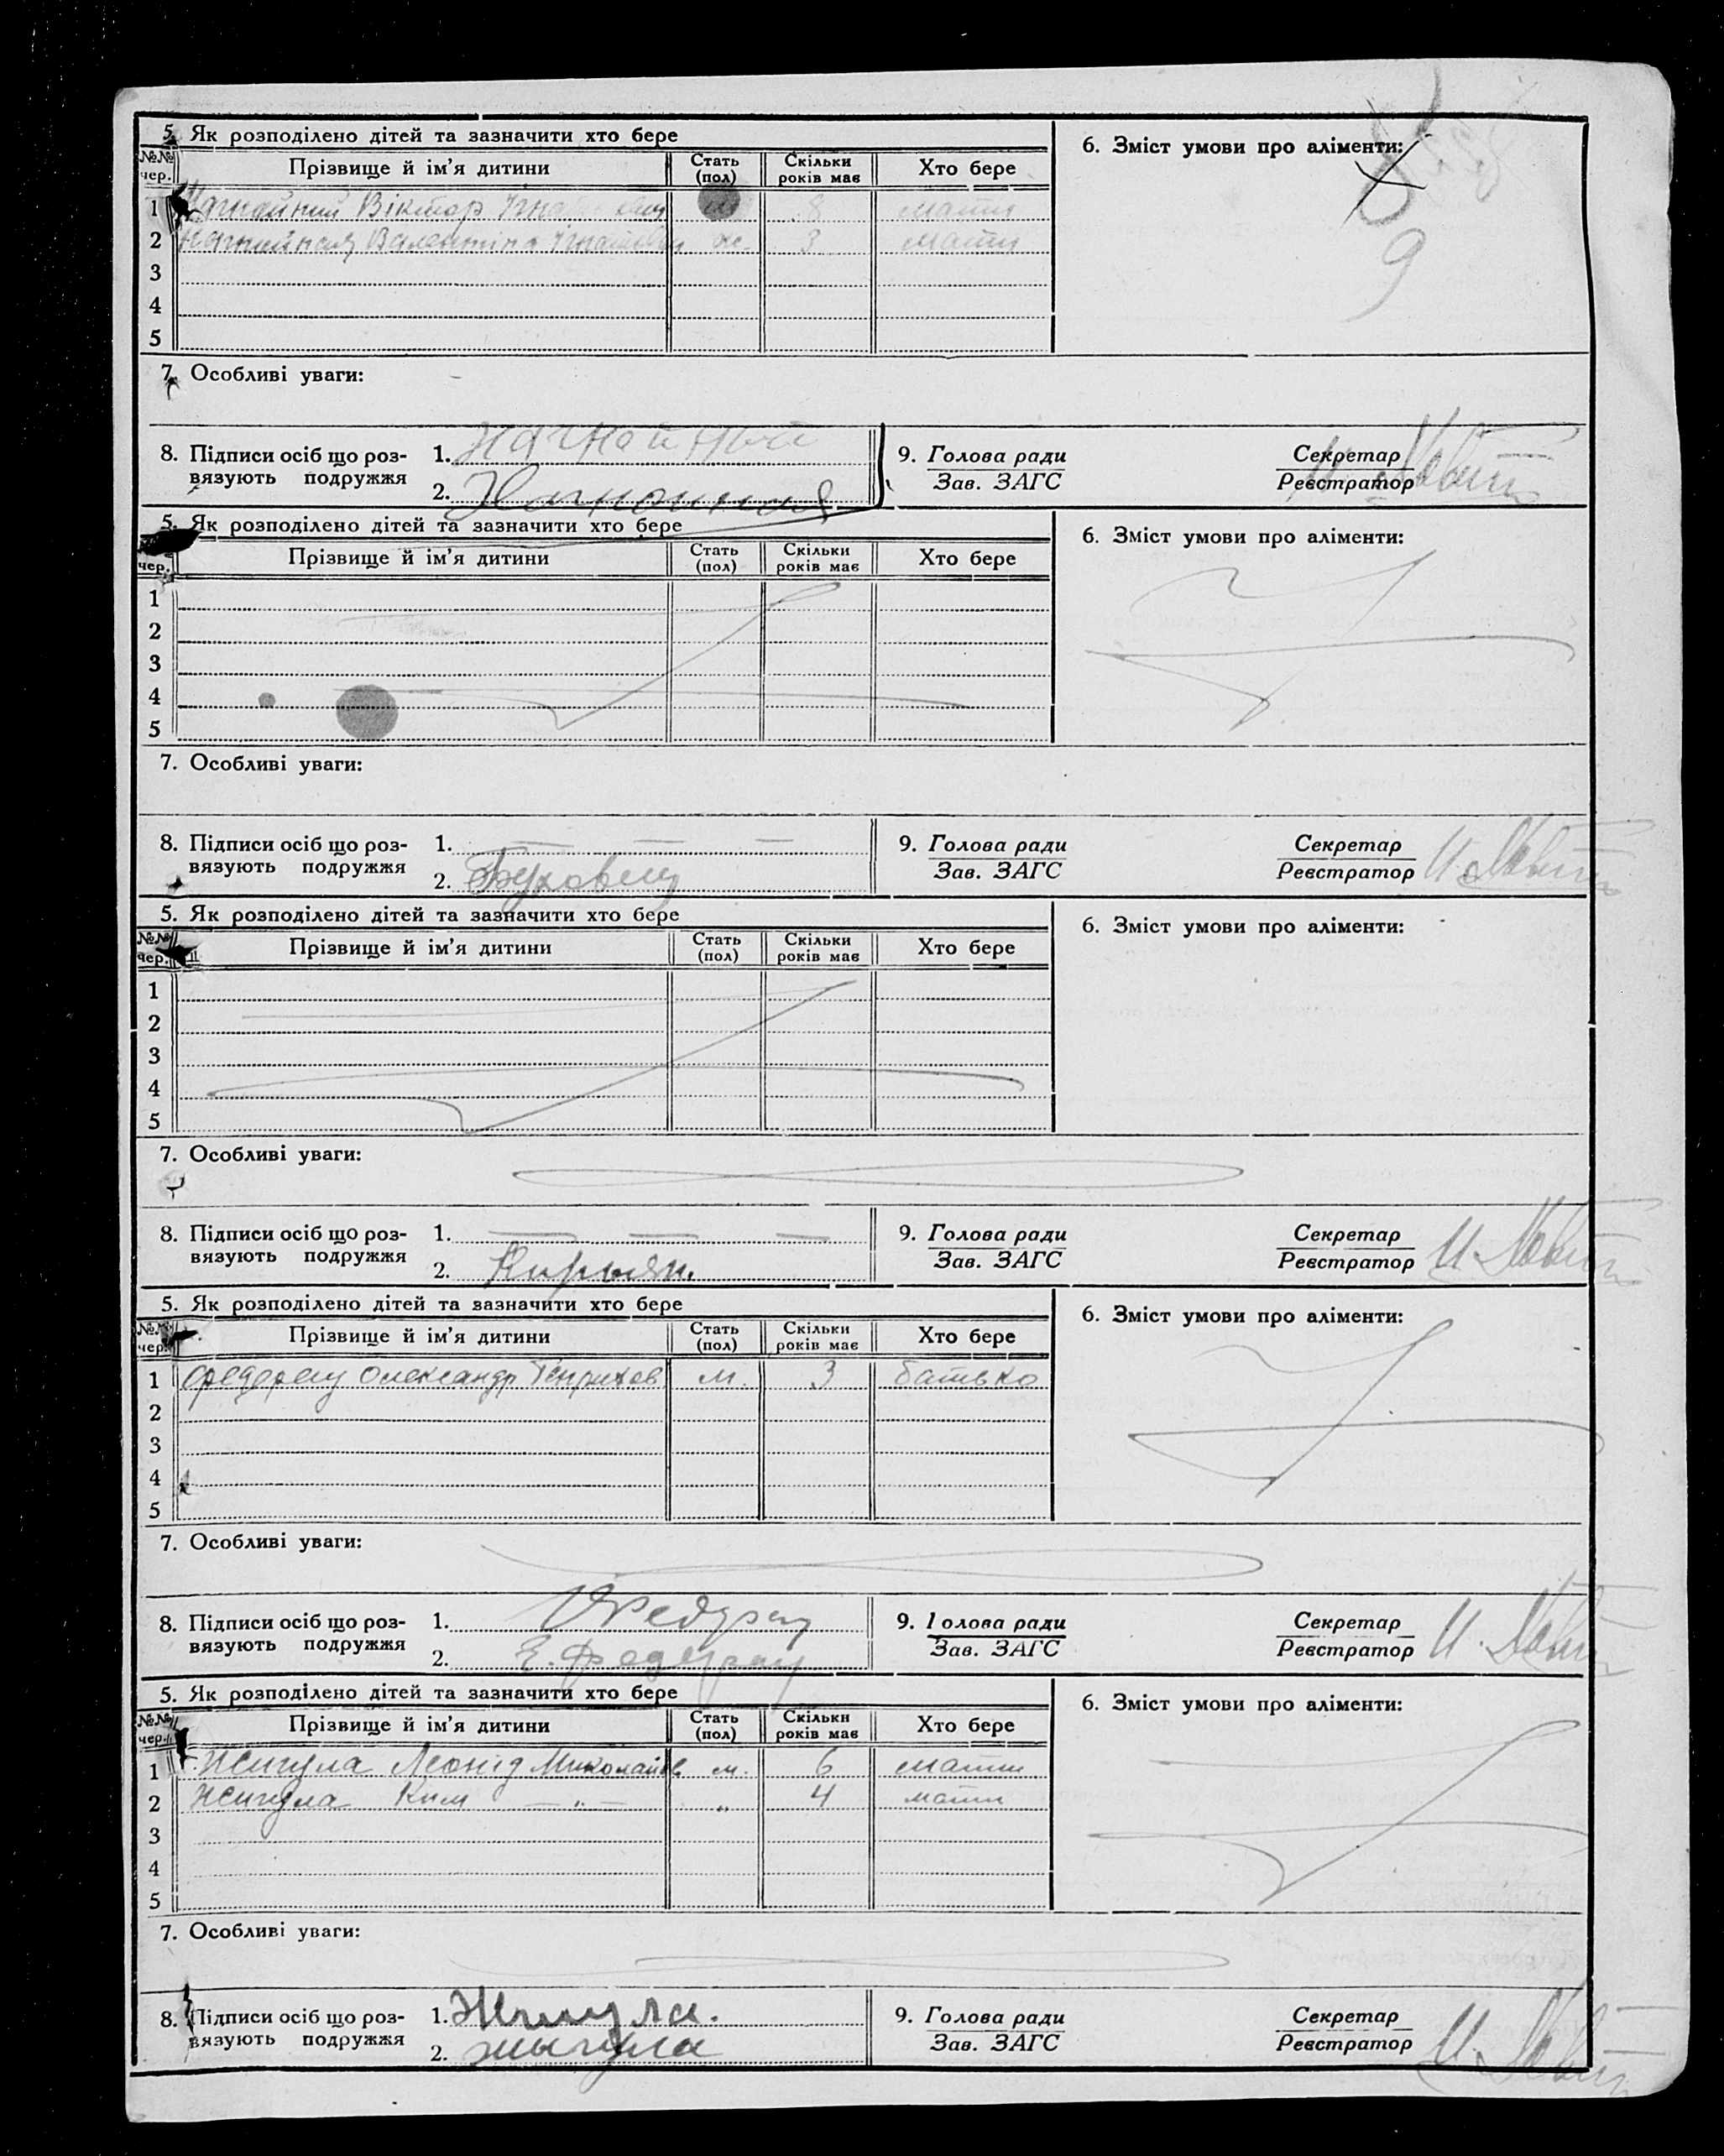 5. Як розподілено дітей та зазначити хто бере
6. Зміст умови про аліменти:
№№ чер. Прізвище й ім'я дитини Стать (пол) Скільки років має Хто бере
1 Віктор 8 мати
2 Валентина ж. 3 мати
3
4
5
9
7. Особливі уваги:
8. Підписи осіб що роз-
вязують подружжя
1. Нагнойный
2. Нагнойная
9. Голова ради
Зав. ЗАГС
Секретар
Реєстратор
5. Як розподілено дітей та зазначити хто бере
6. Зміст умови про аліменти:
чер. Прізвище й ім'я дитини Стать (пол) Скільки років має Хто бере
1
2
3
4
5
7. Особливі уваги:
8. Підписи осіб що роз-
вязують подружжя
1. — — —
2.
9. Голова ради
Зав. ЗАГС
Секретар
Реєстратор И.
5. Як розподілено дітей та зазначити хто бере
6. Зміст умови про аліменти:
№№ чер. Прізвище й ім'я дитини Стать (пол) Скільки років має Хто бере
1
2
3
4
5
7. Особливі уваги:
8. Підписи осіб що роз-
вязують подружжя
1. — — —
2. Кирьян.
9. Голова ради
Зав. ЗАГС
Секретар
Реєстратор И.
5. Як розподілено дітей та зазначити хто бере
6. Зміст умови про аліменти:
№№ чер. Прізвище й ім'я дитини Стать (пол) Скільки років має Хто бере
1 Федерау Олександр Генрихов м. 3 батько
2
3
4
5
7. Особливі уваги:
8. Підписи осіб що роз-
вязують подружжя
1.
2. Е. Федерау
9. Голова ради
Зав. ЗАГС
Секретар
Реєстратор И.
5. Як розподілено дітей та зазначити хто бере
6. Зміст умови про аліменти:
№№ чер. Прізвище й ім'я дитини Стать (пол) Скільки років має Хто бере
1 Жигула Леонід Миколаїв м. 6 мати
2 Жигула Ким — „ — „ 4 мати
3
4
5
7. Особливі уваги:
8. Підписи осіб що роз-
вязують подружжя
1. Жигула.
2. жигула
9. Голова ради
Зав. ЗАГС
Секретар
Реєстратор И.